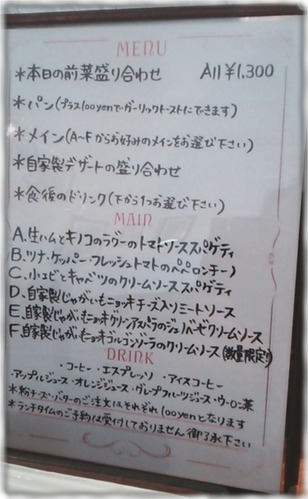 MENU
*本日の前菜盛り合わせ All ¥1,300
*パン(プラス100yenでガーリックトーストにできます)
*メイン(A~Fからお好みのメインをお選び下さい)
*自家製デザートの盛り合わせ
*食後のドリンク(下から1つお選び下さい)
MAIN
A.生ハムとキノコのラグーのトマトソーススパゲティ
B.ツナ・ケッパー・フレッシュトマトのペペロンチーノ
C.小エビとキャベツのクリームソーススパゲティ
D.自家製じゃがいもニョッキチーズ入りミートソース
E.自家製じゃがいもニョッキグリーンアスパラのジェノバーゼクリームソース
F.自家製じゃがいもニョッキゴルゴンゾーラのクリームソース(数量限定!)
DRINK
・コーヒー・エスプレッソ・アイスコーヒー
・アップルジュース・オレンジジュース・グレープフルーツジュース・ウーロン茶
*粉チーズ・バターのご注文はそれぞれ100yenとなります
*ランチタイムのご予約は受付しておりません御了承下さい